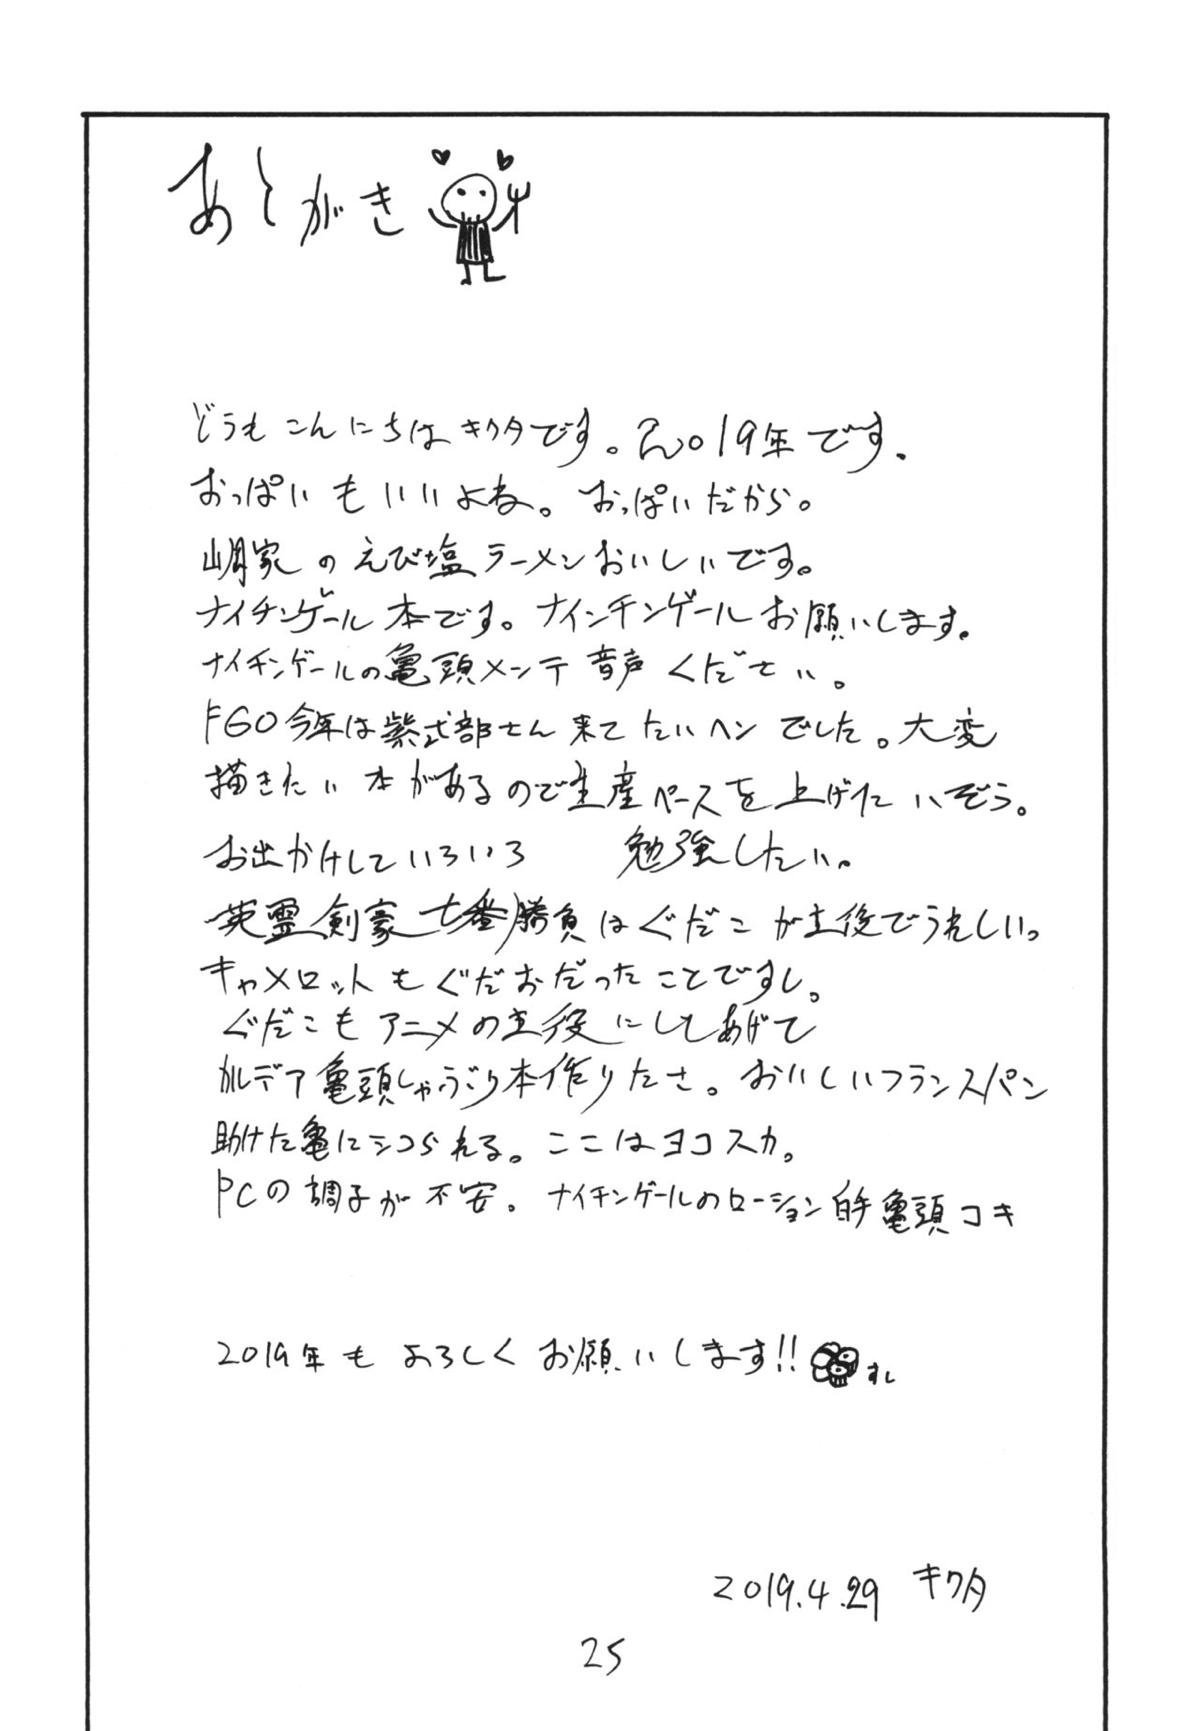 あとがき
どうもこんにちはキクタです。2019年です。
おっぱいもいいよね。おっぱいだから。
山岡家のえび塩ラーメンおいしいです。
ナイチンゲール本です。ナインチンゲールお願いします。
ナイチンゲールの亀頭メンテ音声ください。
FGO今年は紫式部さん来てたいヘンでした。大変
描きたい本があるので生産ペースを上げたいぞう。
お出かけしていろいろ 勉強したい。
英霊剣豪七番勝負はぐだこが主役でうれしい。
キャメロットもぐだおだったことですし。
ぐだこもアニメの主役にしてあげて
カルデア亀頭しゃぶり本作りたさ。おいしいフランスパン
助けた亀にシコられる。ここはヨコスカ。
PCの調子が不安。ナイチンゲールのローション手亀頭コキ
2019年もよろしくお願いします!!すし
2019.4.29 キクタ
25